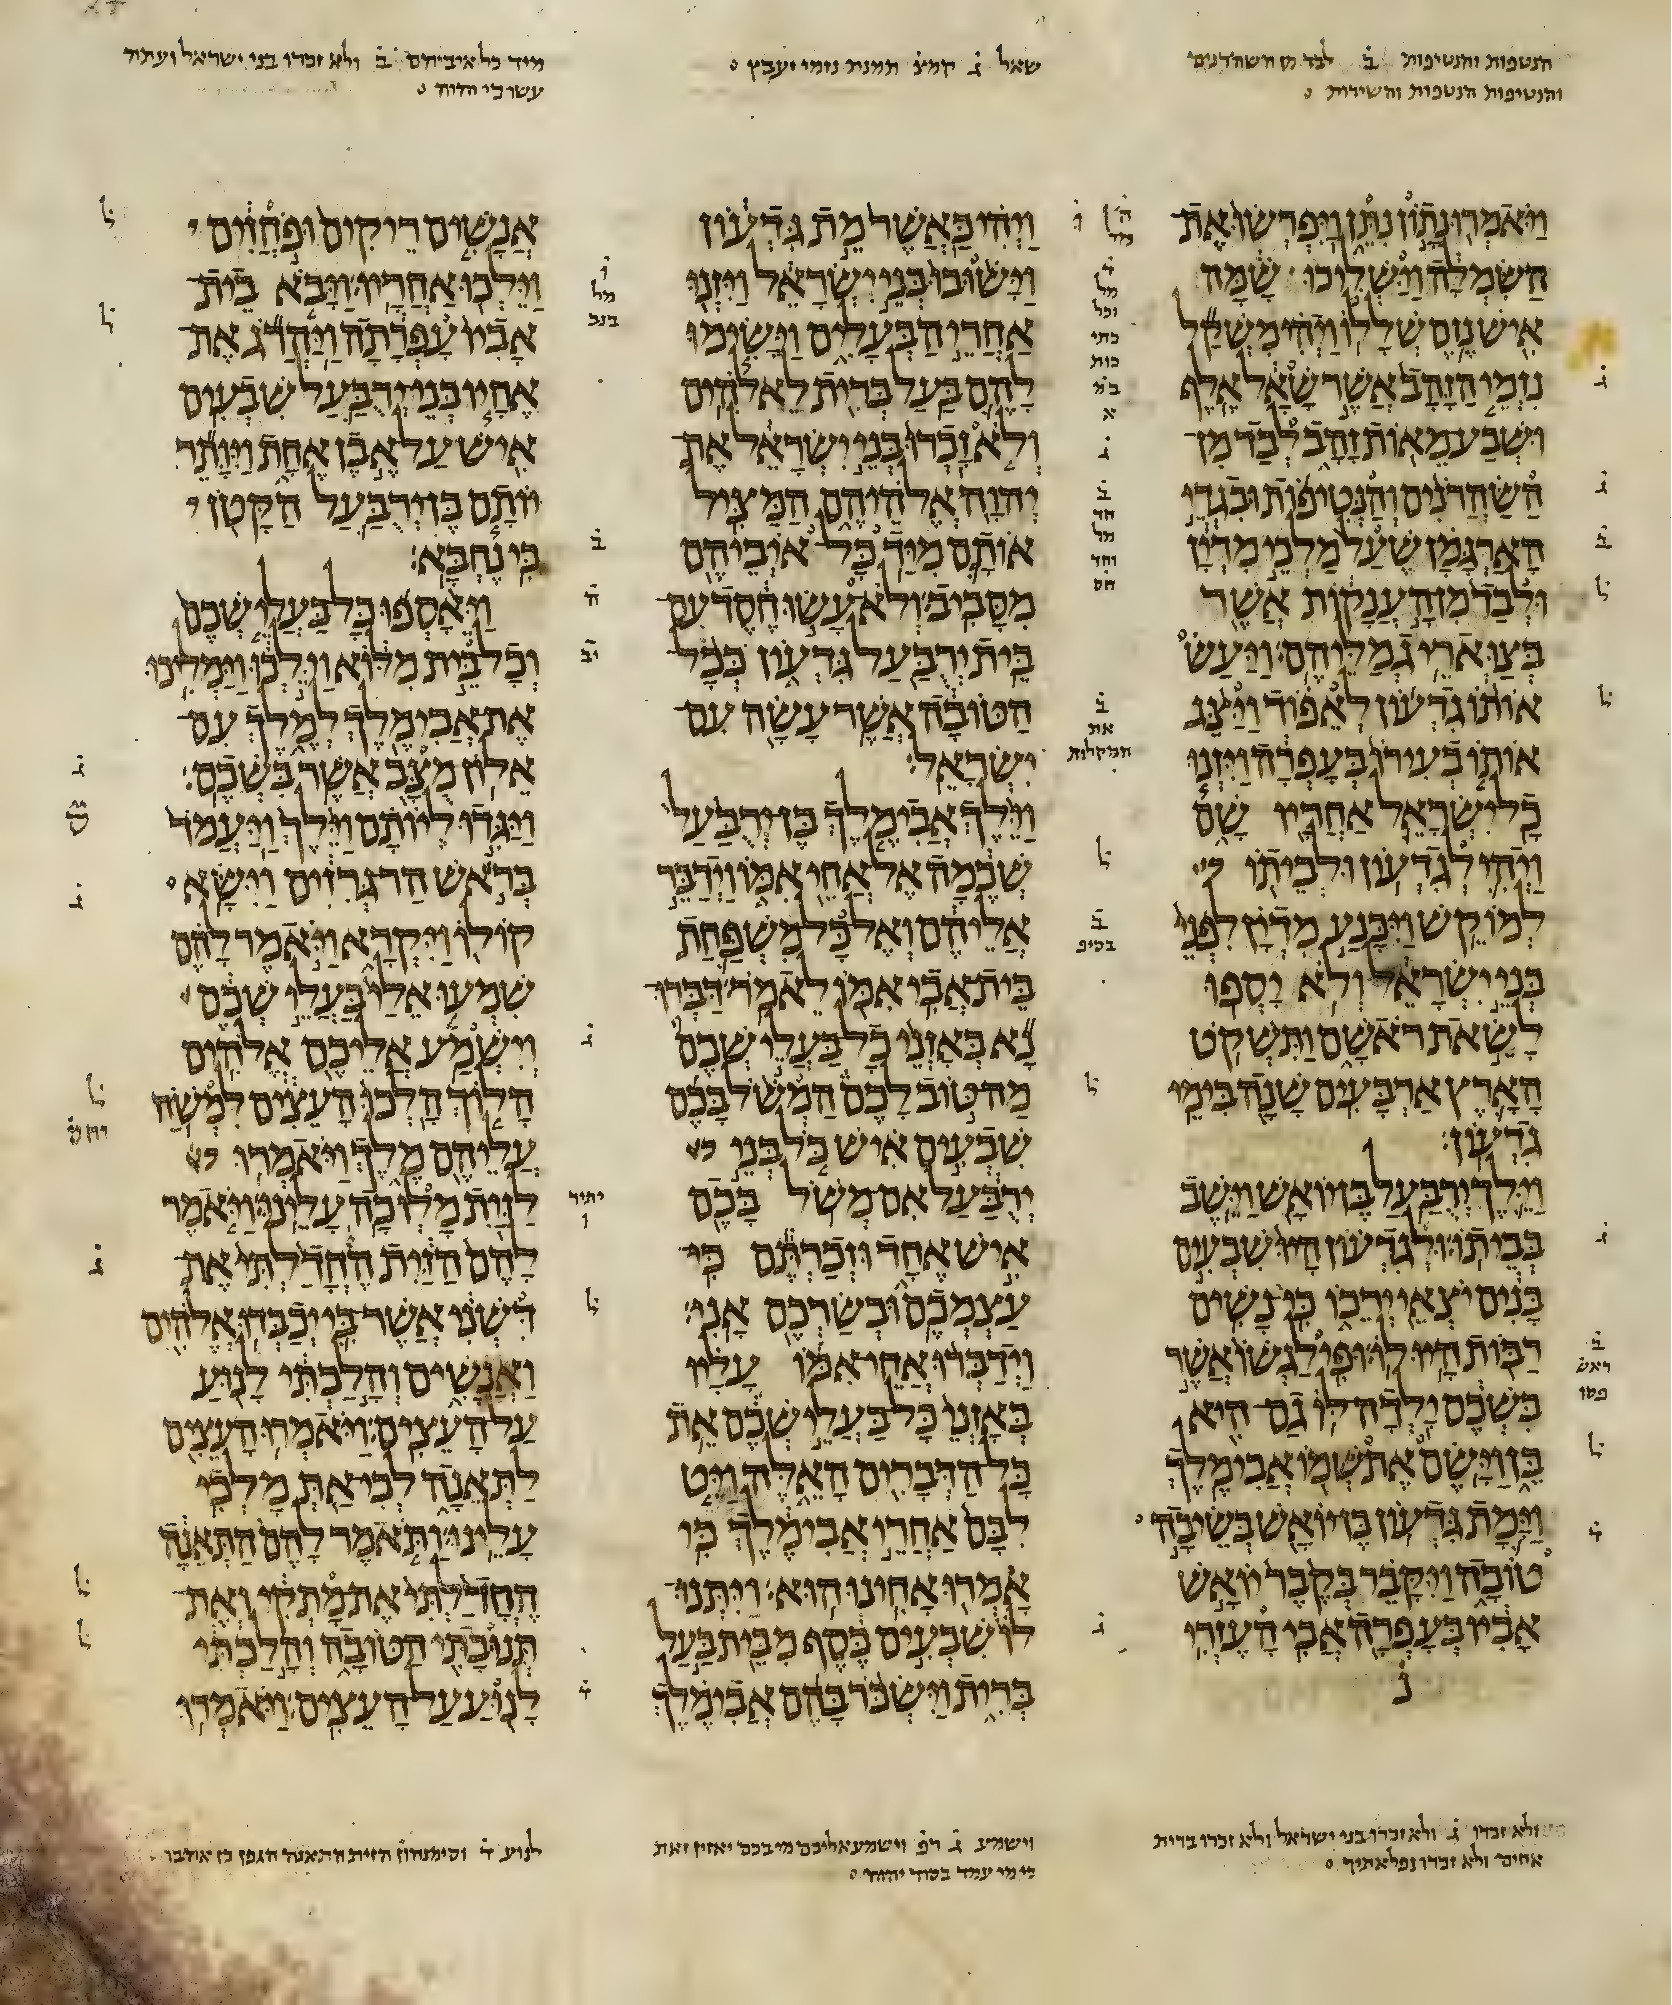 הנטפות והנטיפות ב לבד מן השהרנים
והנטיפות הנטפות והשירות
שאל ג קמצ תמנת נזמי יעבץ
מיד כל איביהם ב ולא זכרו בני ישראל ועתה
ויאמרו נתון נתן ויפרשו את
השמלה וישליכו שמה
איש נזם שללו ויהי משקל
נזמי הזהב אשר שאל אלף
ושבע מאות זהב לבד מן
השהרנים והנטיפות ובגדי
הארגמן שעל מלכי מדין
ולבד מן הענקות אשר
בצוארי גמליהם ויעש
אותו גדעון לאפוד ויצג
אותו בעירו בעפרה ויזנו
כל ישראל אחריו שם
ויהי לגדעון ולביתו
למוקש ויכנע מדין לפני
בני ישראל ולא יספו
לשאת ראשם ותשקט
הארץ ארבעים שנה בימי
גדעון
וילך ירבעל בן יואש וישב
בביתו ולגדעון היו שבעים
בנים יצאי ירכו כי נשים
רבות היו לו ופילגשו אשר
בשכם ילדה לו גם היא
בן וישם את שמו אבימלך
וימת גדעון בן יואש בשיבה
טובה ויקבר בקבר יואש
אביו בעפרה אבי העזרי
ויהי כאשר מת גדעון
וישובו בני ישראל ויזנו
אחרי הבעלים וישימו
להם בעל ברית לאלהים
ולא זכרו בני ישראל את
יהוה אלהיהם המציל
אותם מיד כל אויביהם
מסביב ולא עשו חסד עם
בית ירבעל גדעון ככל
הטובה אשר עשה עם
ישראל
וילך אבימלך בן ירבעל
שכמה אל אחי אמו וידבר
אליהם ואל כל משפחת
בית אבי אמו לאמר דברו
נא באזני כל בעלי שכם
מה טוב לכם המשל בכם
שבעים איש כל בני
ירבעל אם משל בכם
איש אחד וזכרתם כי
עצמכם ובשרכם אני
וידברו אחי אמו עליו
באזני כל בעלי שכם את
כל הדברים האלה ויט
לבם אחרי אבימלך כי
אמרו אחינו הוא ויתנו
לו שבעים כסף מבית בעל
ברית וישכר בהם אבימלך
אנשים ריקים ופחזים
וילכו אחריו ויבא בית
אביו עפרתה ויהרג את
אחיו בני ירבעל שבעים
איש על אבן אחת ויותר
יותם בן ירבעל הקטן
כי נחבא
ויאספו כל בעלי שכם
וכל בית מלוא וילכו וימליכו
את אבימלך למלך עם
אלון מצב אשר בשכם
ויגדו ליותם וילך ויעמד
בראש הר גרזים וישא
קולו ויקרא ויאמר להם
שמעו אלי בעלי שכם
וישמע אליכם אלהים
הלוך הלכו העצים למשח
עליהם מלך ויאמרו
לזית מלוכה עלינו ויאמר
להם הזית החדלתי את
דשני אשר בי יכבדו אלהים
ואנשים והלכתי לנוע
על העצים ויאמרו העצים
לתאנה לכי את מלכי
עלינו ותאמר להם התאנה
החדלתי את מתקי ואת
תנובתי הטובה והלכתי
לנוע על העצים ויאמרו
ולא זכרו ג ולא זכרו בני ישראל ולא זכרו ברית
אחים ולא זכרו נפלאתיך
וישמע ג רפ וישמע אליכם מי בכם יאזין זאת
כי מי עמד בסוד יהוה
לנוע ד וסימנהון הזית התאנה הגפן כן אהבו